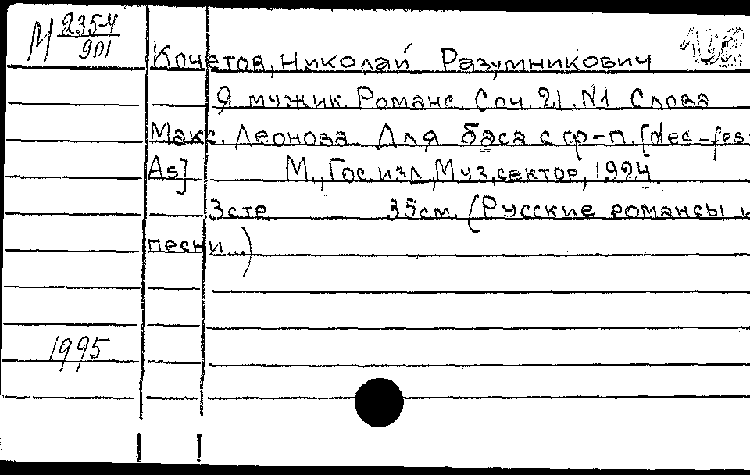 М 235-4
901
Кочетов, Николай Разумникович
Я мужик. Романс. Соч. 21. №1 Слова
Макс. Леонова. Для баса с ф-п. [des-fes-
As] М., Гос. изд., Муз. сектор, 1924.
3 стр. 35 см. (Русские романсы и
песни...)
1995